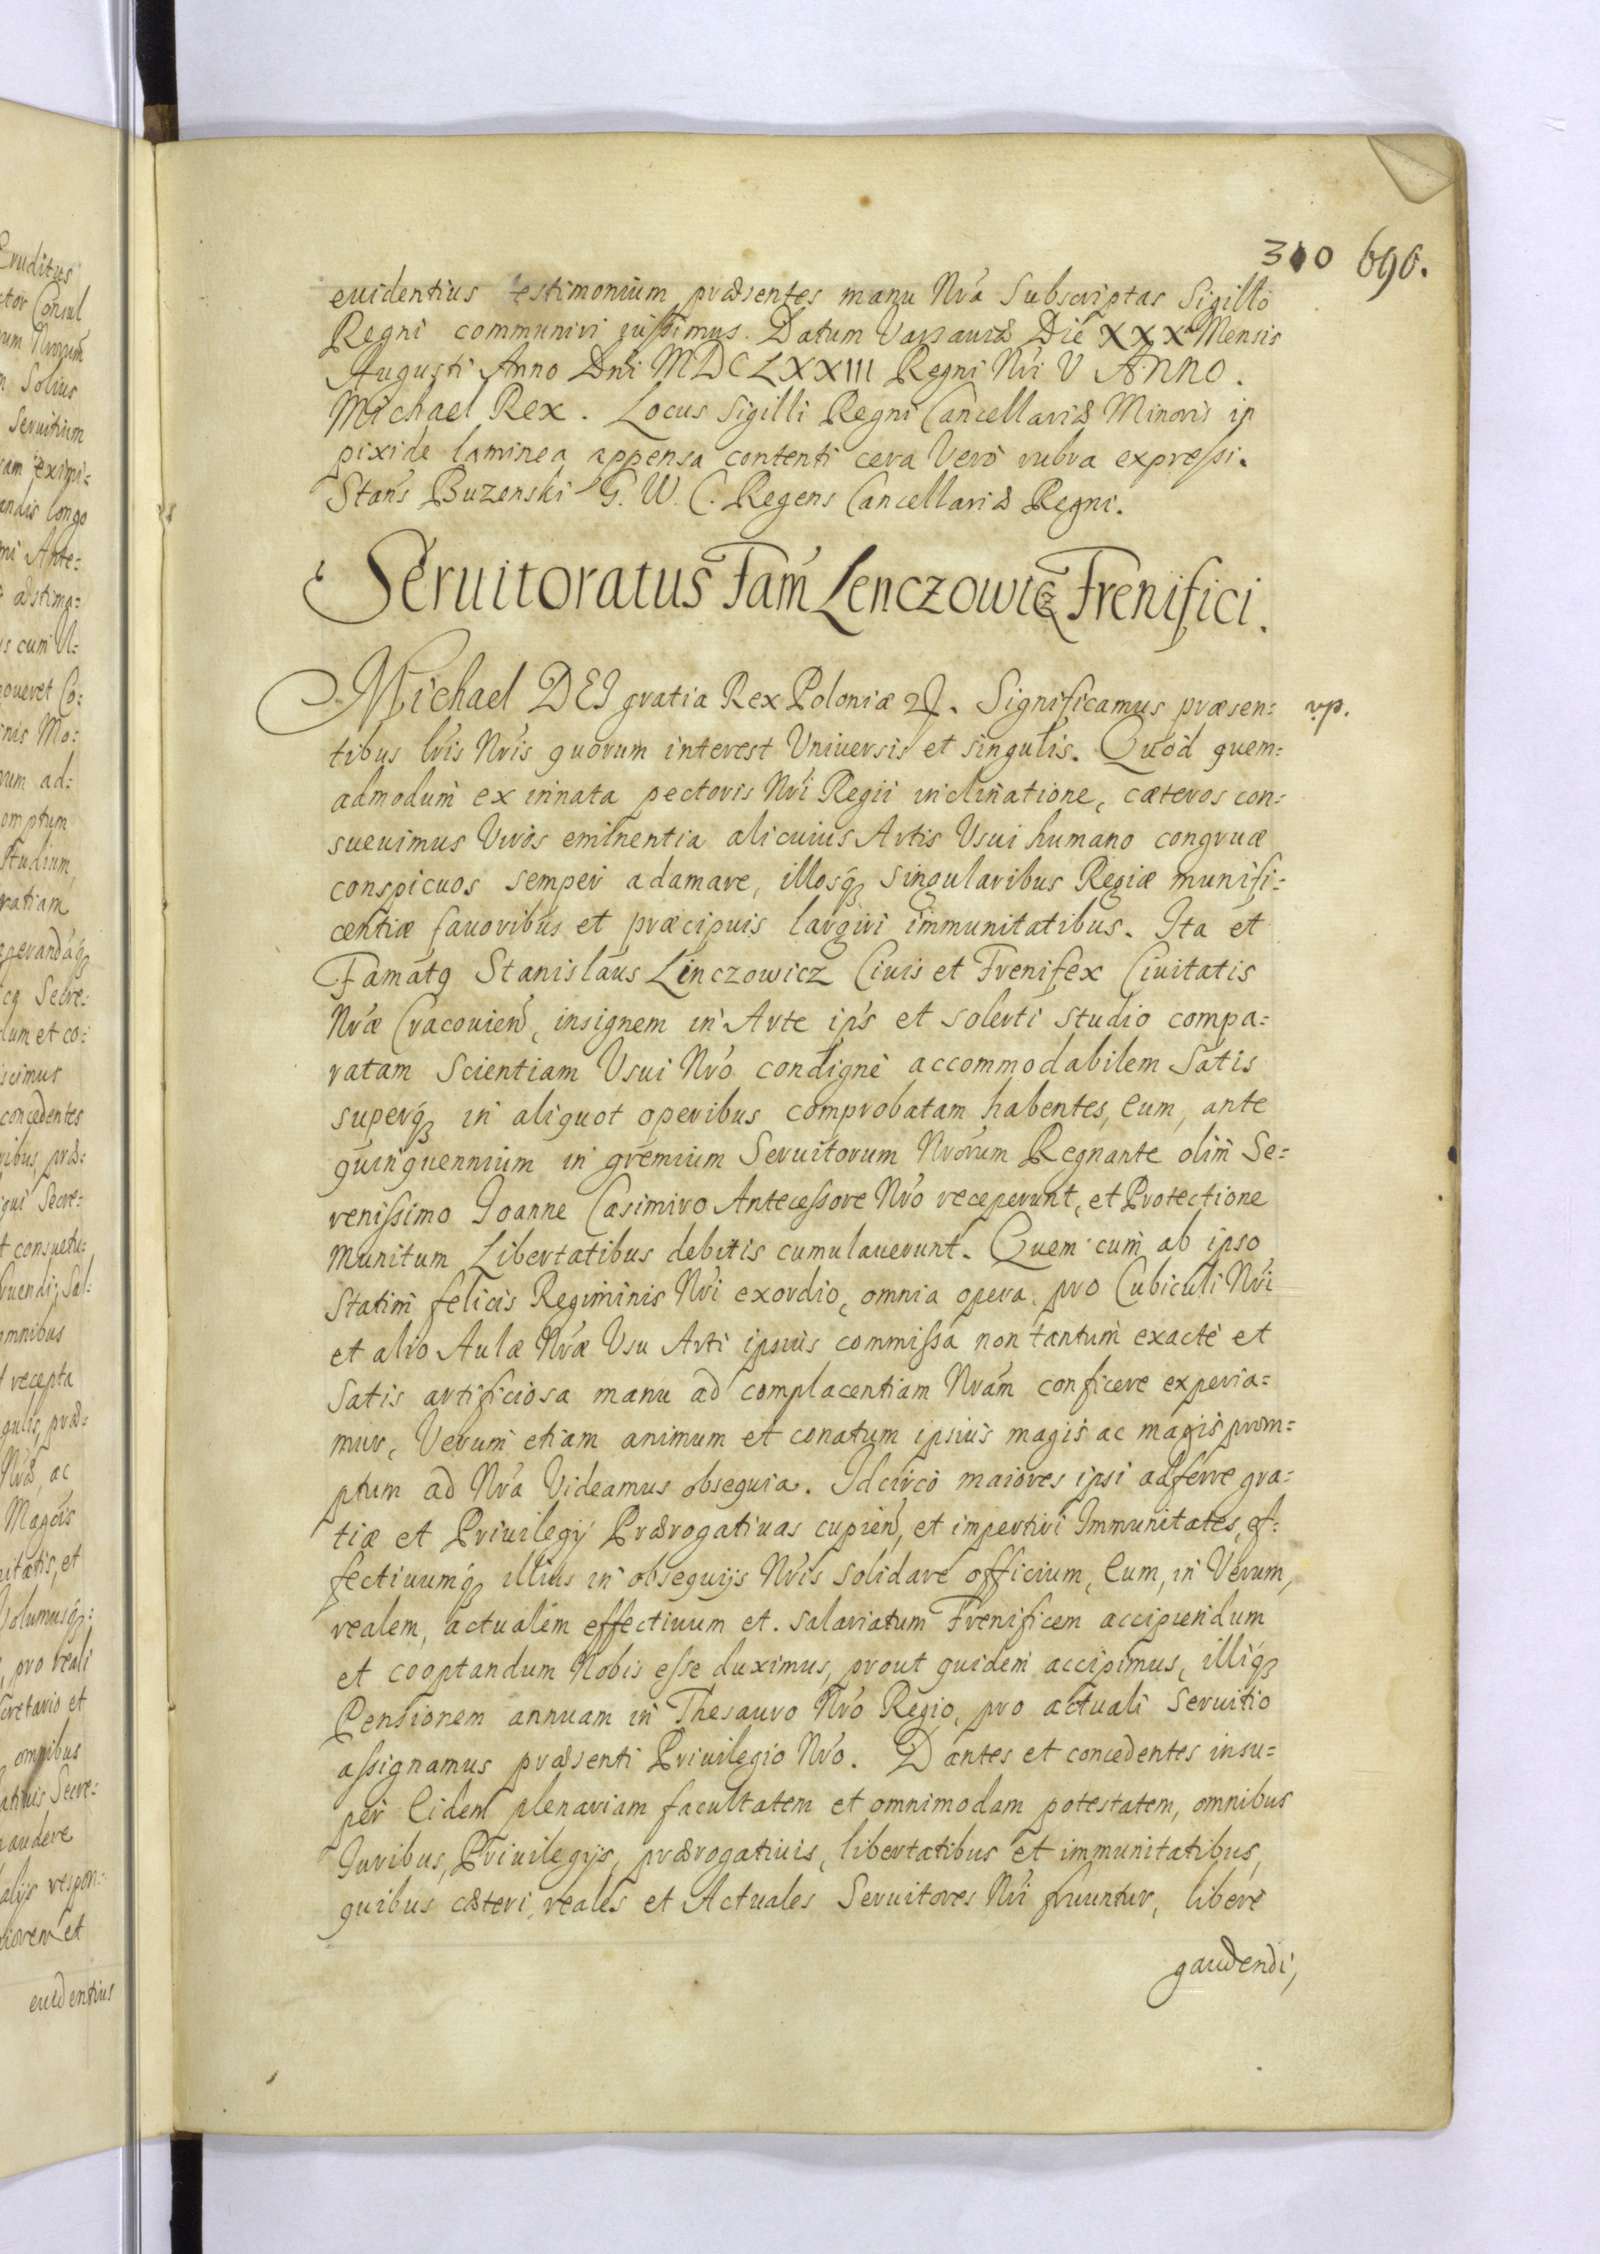 310 696.
euidentius testimonium præsentes manu Nrá Subscriptas Sigillo
Regni communiri jussimus. Datum Varsauiæ Die XXX Mensis
Augusti Anno Dni MDCLXXIII Regni Nri V Anno.
Michael Rex. Locus Sigilli Regni Cancellariæ Minoris in
pixide laminea appensa contenti cera Vero rubra expressi.
Stans Buzenski G. W. C. Regens Cancellariæ Regni.
Seruitoratus Fam Lenczowicz Frenifici.
Michael DEI gratia Rex Poloniæ Significamus præsen=
tibus lris Nris quorum interest Universis et singulis. Quod quem=
admodum ex innata pectoris Nri Regii inclinatione, cæteros con=
sueuimus Viros eminentia alicuius Artis Usui humano congruæ
conspicuos semper adamare, illosq singularibus Regiæ munifi=
centiæ fauoribus et præcipuis largiri immunitatibus. Ita et
Famatq Stanislaus Linczowicz Ciuis et Frenifex Ciuitatis
Nræ Cracouien, insignem in Arte ips et solerti studio compa=
ratam Scientiam Usui Nro condigne accommodabilem Satis
superq in aliquot operibus comprobatam habentes, Eum, ante
quinquennium in gremium Seruitorum Nrorum Regnante olim Se=
renissimo Joanne Casimiro Antecessore Nro receperunt, et Protectione
munitum Libertatibus debitis cumulauerunt. Quem cum ab ipso
Statim felicis Regiminis Nri exordio, omnia opera pro Cubiculi Nri
et alio Aulæ Nræ Usu Arti ipsius commissa non tantum exacte et
Satis artificiosa manu ad complacentiam Nram conficere experia=
mur, Verum etiam animum et conatum ipsius magis ac magis prom=
ptum ad Nra Videamus obsequia. Idcirco maiores ipsi adferre gra=
tiæ et Priuilegij Prærogatiuas cupien, et impertiri Immunitates, ef=
fectiuumq illius in obsequijs Nris solidare officium, Eum, in Verum,
realem, actualem effectiuum et. salariatum Frenificem accipiendum
et cooptandum Nobis esse duximus, prout quidem accipimus, illiq
Pensionem annuam in Thesauro Nro Regio, pro actuali Seruitio
assignamus præsenti Priuilegio Nro. Dantes et concedentes insu=
per Eidem plenariam facultatem et omnimodam potestatem, omnibus
Juribus, Priuilegijs, prærogatiuis, libertatibus et immunitatibus,
quibus cæteri, reales et Actuales Seruitores Nri fruuntur, libere
gaudendi,
vp.